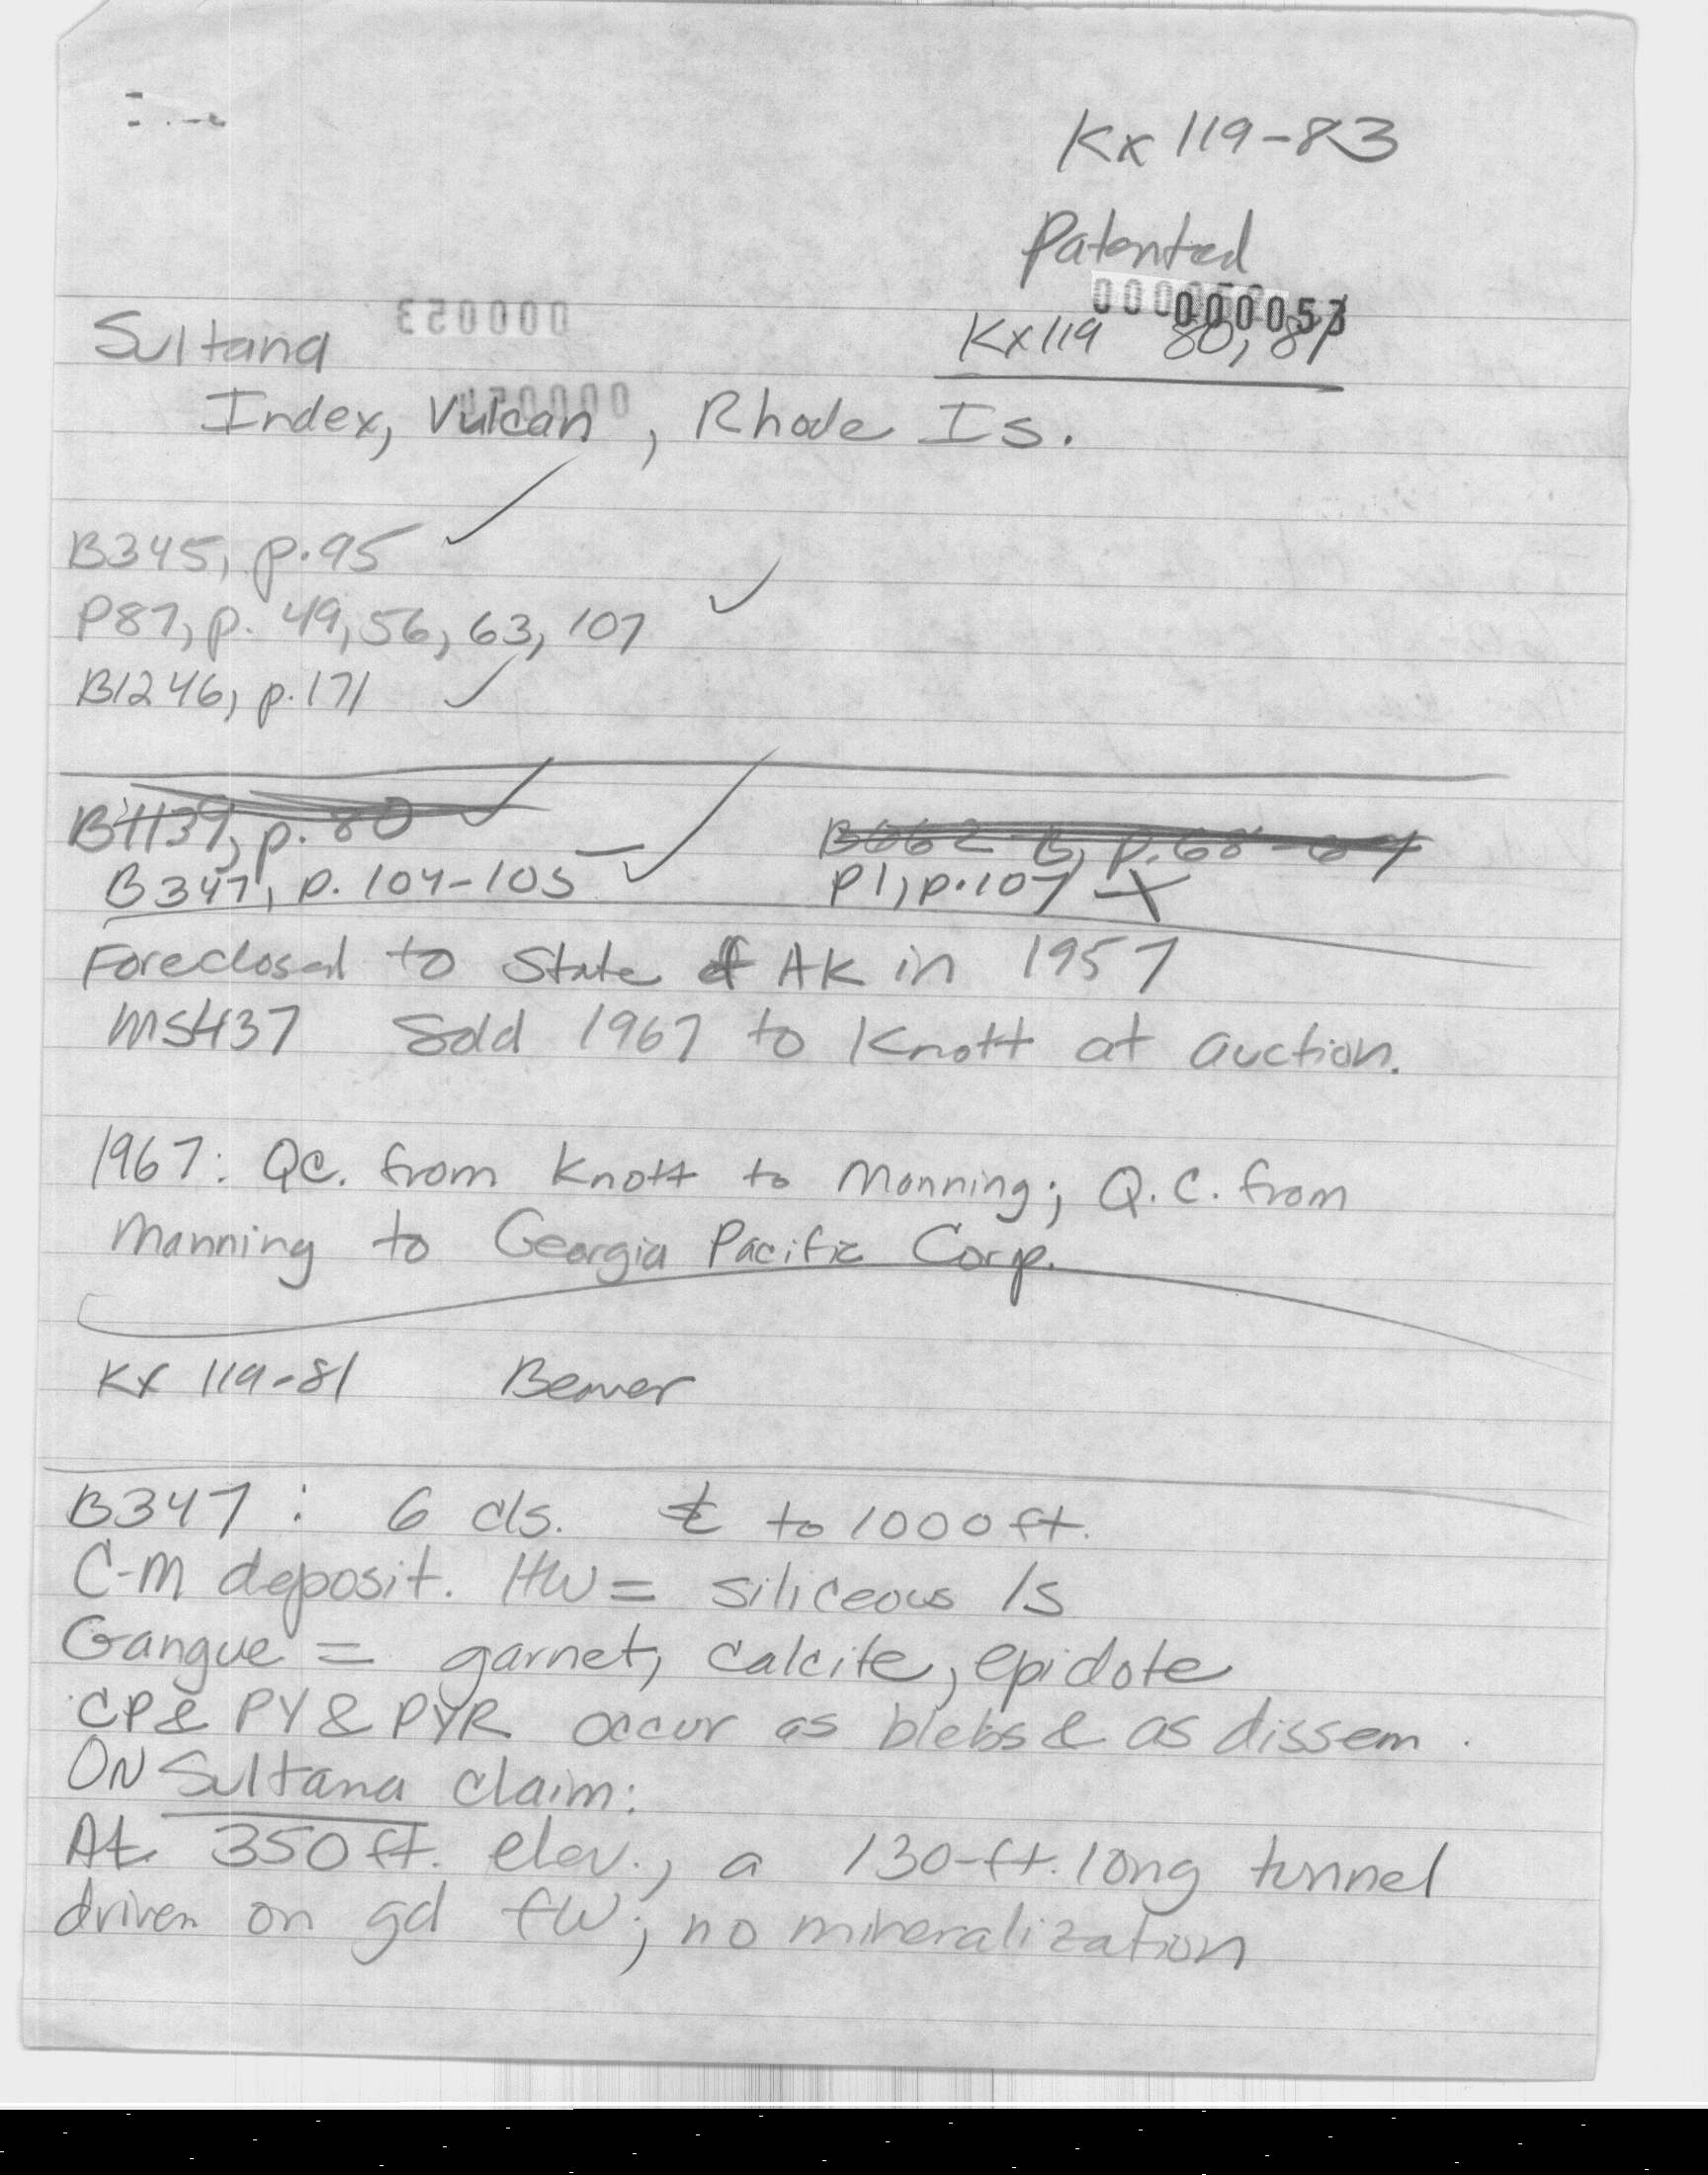 Kx 119-83
Patented
000053
Sultana
Kx119 80, 81
Index, Vulcan, Rhode Is.
B345, p.95
P87, p. 49, 56, 63, 107
B1246, p.171
p. 80
B347, p. 104-105
P1, p.107 X
Foreclosed to State of AK in 1957
MS437 Sold 1967 to Knott at auction.
1967: QC. from Knott to Manning; Q.C. from
Manning to Georgia Pacific Corp.
Kx 119-81 Beaver
B347: 6 cls. to 1000 ft.
C-M deposit. HW = siliceous ls
Gangue = garnet, calcite, epidote
CP & PY & PYR occur as blebs & as dissem.
ON Sultana claim:
At 350 ft. elev., a 130-ft. long tunnel
driven on gd fw; no mineralization